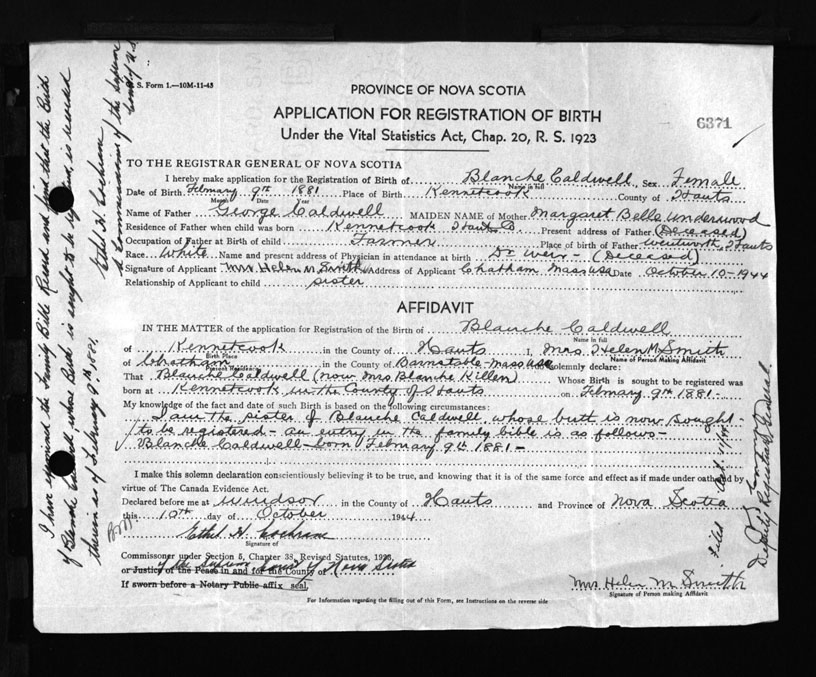 S. Form 1.—10M-11-43
PROVINCE OF NOVA SCOTIA
APPLICATION FOR REGISTRATION OF BIRTH
6371
Under the Vital Statistics Act, Chap. 20, R. S. 1923
TO THE REGISTRAR GENERAL OF NOVA SCOTIA
I hereby make application for the Registration of Birth of Blanche Caldwell, Sex Female
Name in full
Date of Birth February 9th 1881 Place of Birth Kennetcook County of Hants
Month Date Year
Name of Father George Caldwell MAIDEN NAME of Mother Margaret Belle Underwood
Residence of Father when child was born Kennetcook Hants Co Present address of Father (Deceased)
Occupation of Father at Birth of child Farmer Place of birth of Father Wentworth, Hants
Race White Name and present address of Physician in attendance at birth Dr Weir - (Deceased)
Signature of Applicant Mrs Helen M. Smith Address of Applicant Chatham Mass USA Date October 10-1944
Relationship of Applicant to child sister
AFFIDAVIT
IN THE MATTER of the application for Registration of the Birth of Blanche Caldwell
Name in full
of Kennetcook in the County of Hants I, Mrs Helen M Smith
Birth Place Name of Person Making Affidavit
of Chatham in the County of Barnstable-Mass USA do solemnly declare:
Present Residence
That Blanche Caldwell (now Mrs Blanche Killen) Whose Birth is sought to be registered was
born at Kennetcook in the County of Hants on February 9th 1881-
My knowledge of the fact and date of such Birth is based on the following circumstances:
I am the sister of Blanche Caldwell whose birth is now sought
to be registered - an entry in the family bible is as follows-
Blanche Caldwell-born February 9th 1881-
I make this solemn declaration conscientiously believing it to be true, and knowing that it is of the same force and effect as if made under oath and by
virtue of The Canada Evidence Act.
Declared before me at Windsor in the County of Hants and Province of Nova Scotia
this 10th day of October 1944
Ethel H. Cochran
Signature of
Commissoner under Section 5, Chapter 38, Revised Statutes, 1923,
of the Supreme Court of Nova Scotia
or Justice of the Peace in and for the County of
If sworn before a Notary Public affix seal.
Mrs Helen M. Smith
Signature of Person making Affidavit
For Information regarding the filling out of this Form, see Instructions on the reverse side
I have examined the Family Bible Record and find that the Birth
of Blanche Caldwell, whose Birth is sought to be registered, is recorded
therein as of February 9th 1881.
Ethel H. Cochran
A Commissioner of the Supreme
Court of N.S.
Filed Oct.
Deputy Registrar General